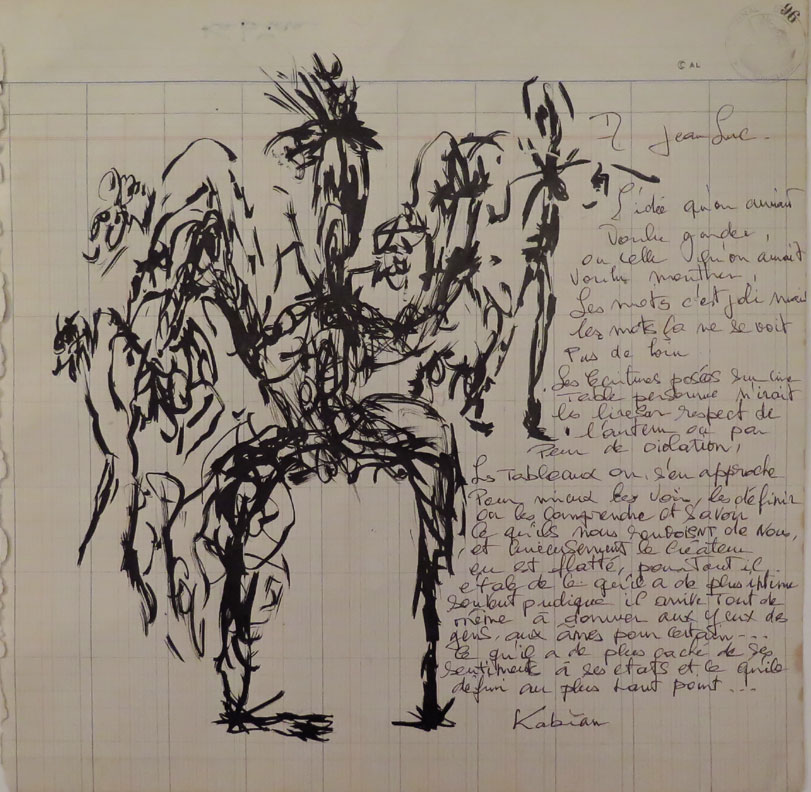 96
© AL
A Jean-Luc.
L'idée qu'on aurait
voulu garder,
ou celle qu'on aurait
voulu montrer,
Les mots c'est joli mais
les mots ça ne se voit
pas de loin
Les écritures posées sur une
Table personne n'irait
les lire par respect de
l'auteur ou par
Peur de violation,
Les Tableaux on s'en approche
Pour mieux les voir, les définir
ou les comprendre et savoir
ce qu'ils nous renvoient de nous,
et curieusement le Créateur
en est flatté, pourtant il
étale ce qu'il a de plus intime
pudique il arrive Tout de
même à donner aux yeux des
gens, aux âmes pour certain...
ce qu'il a de plus caché de ses
sentiments à ses états et ce qu'ils
au plus haut point...
Kabian